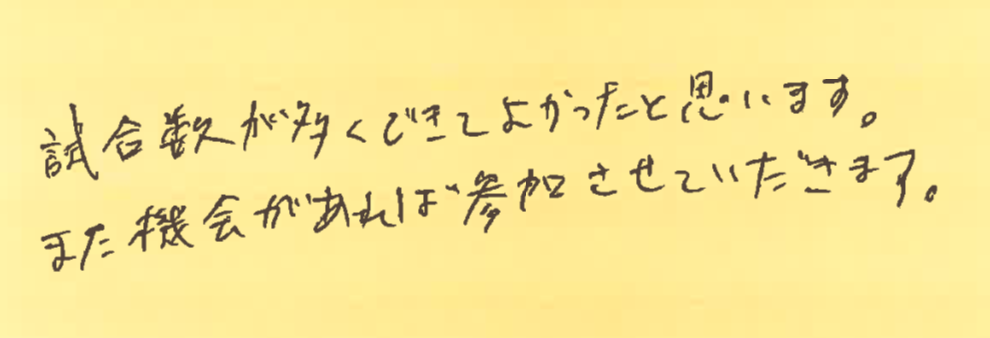 試合数が多くできてよかったと思います。
また機会があれば参加させていただきます。